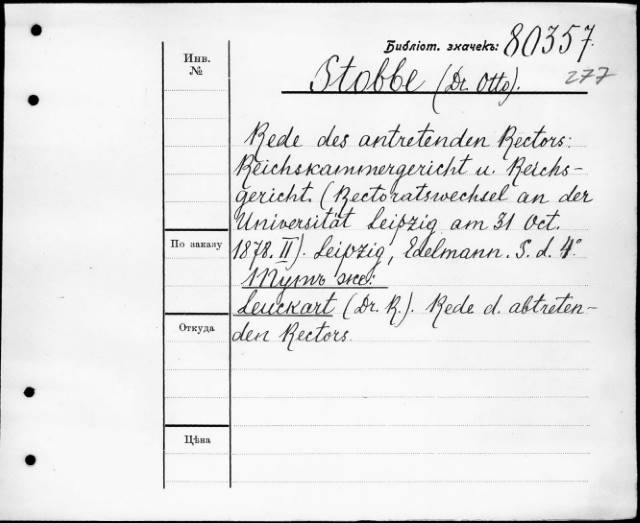 Библіот. значекъ: 80357.
Инв. №
Stobbe (Dr. Otto).
277
Rede des antretenden Rectors:
Reichskammergericht u. Reichs-
gericht. (Rectoratswechsel an der
Universität Leipzig am 31 Oct.
1878. II). Leipzig, Edelmann. S. d. 4°
По заказу
Тутъ же:
Leuckart (Dr. R.). Rede d. abtreten-
den Rectors.
Откуда
Цѣна